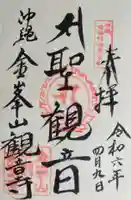 奉拝
令和六年
四月九日
聖観音
沖縄
金峯山観音寺